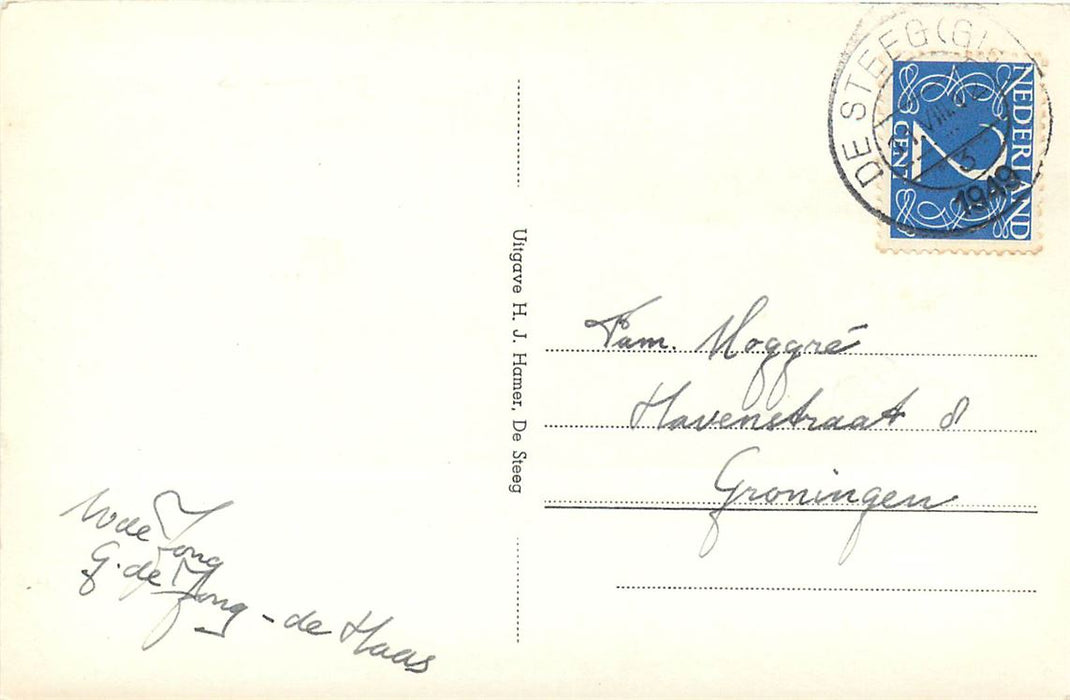 DE STEEG (G
VIII
3
1949
NEDERLAND
2
CENT
Uitgave H. J. Hamer, De Steeg
Fam. Hoggré
Havenstraat 8
Groningen
W de Jong
G. de Jong - de Haas